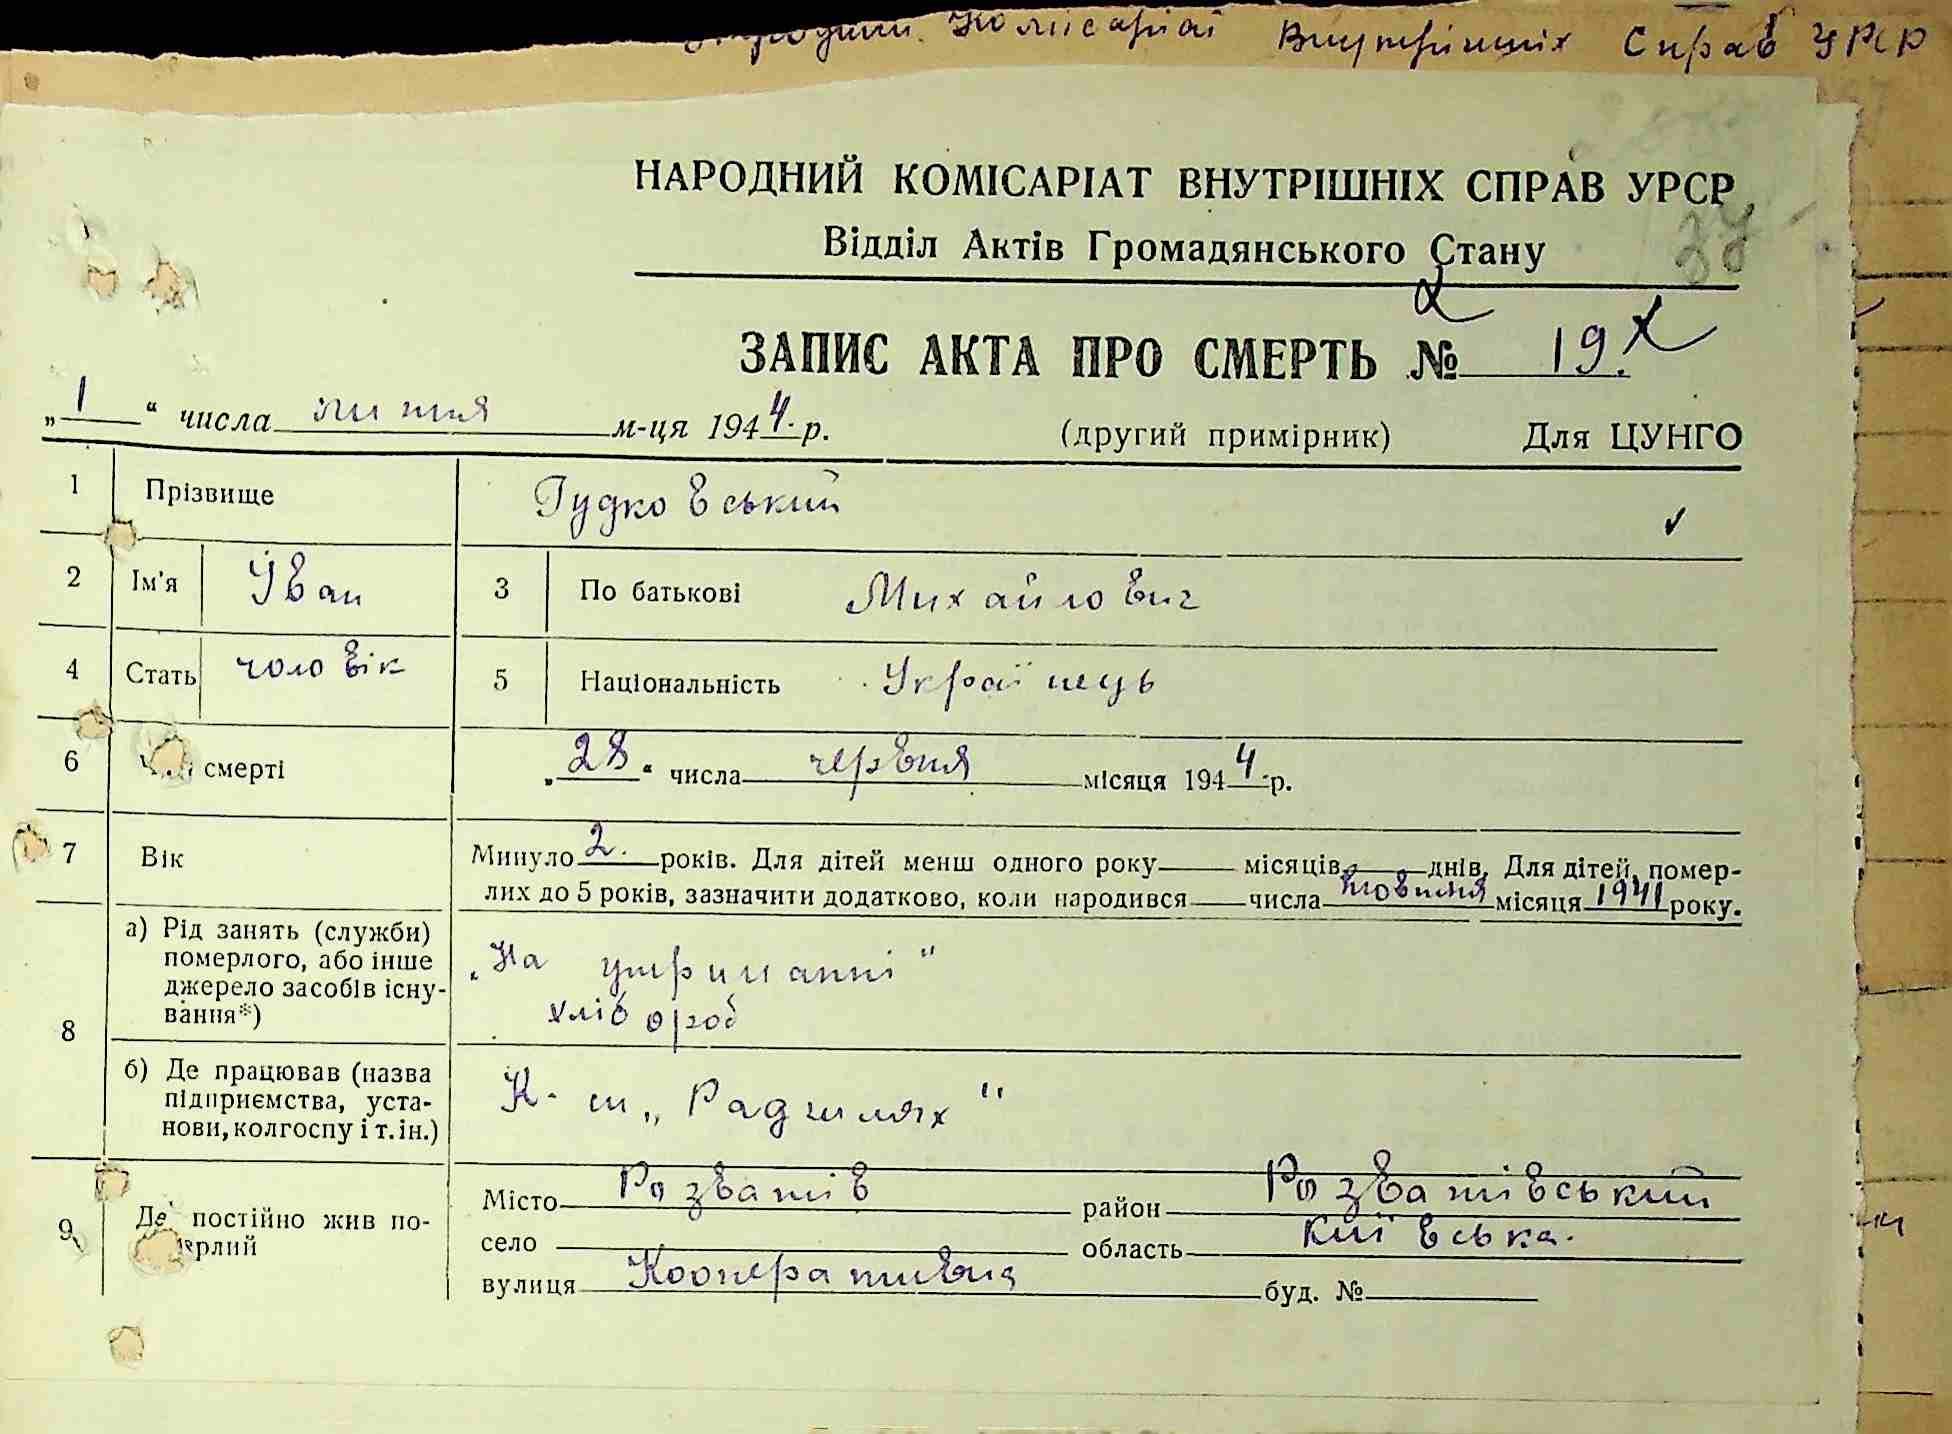 Народний Комісаріат Внутрішніх Справ УРСР
НАРОДНИЙ КОМІСАРІАТ ВНУТРІШНІХ СПРАВ УРСР
Відділ Актів Громадянського Стану
ЗАПИС АКТА ПРО СМЕРТЬ № 19.
„1“ числа липня м-ця 1944.р.
(другий примірник) Для ЦУНГО
1 Прізвище Гудковський
2 Ім'я Іван 3 По батькові Михайлович
4 Стать чоловік 5 Національність Українець
6 смерті „28“ числа червня місяця 1944.р.
7 Вік Минуло 2. років. Для дітей менш одного року місяців днів. Для дітей, помер-
лих до 5 років, зазначити додатково, коли народився числа жовтня місяця 1941 року.
8 а) Рід занять (служби)
померлого, або інше
джерело засобів існу-
вання*)
„На утриманні"
хлібороб
б) Де працював (назва
підприємства, уста-
нови, колгоспу і т. ін.)
К-п „Радшлях"
9 Де постійно жив по-
мерлий
Місто Розважів район Розважівський
село область Київська.
вулиця Кооперативна буд. №